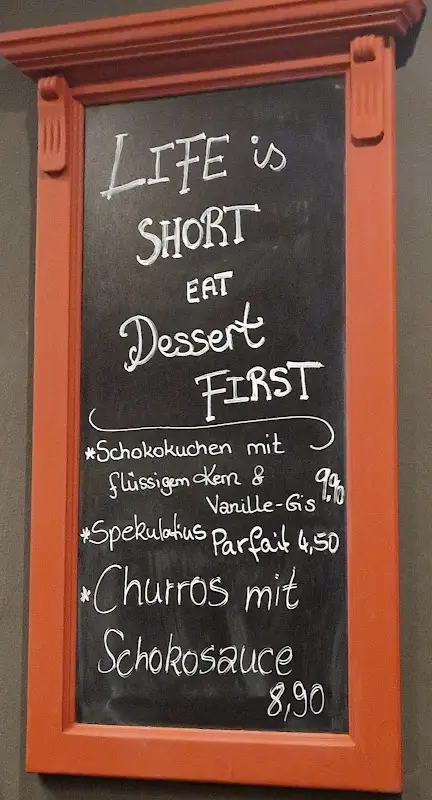 LIFE is
SHORT
EAT
Dessert
FIRST
*Schokokuchen mit
flüssigem Kern &
Vanille-Eis 9,90
*Spekulatius Parfait 4,50
*Churros mit
Schokosauce
8,90